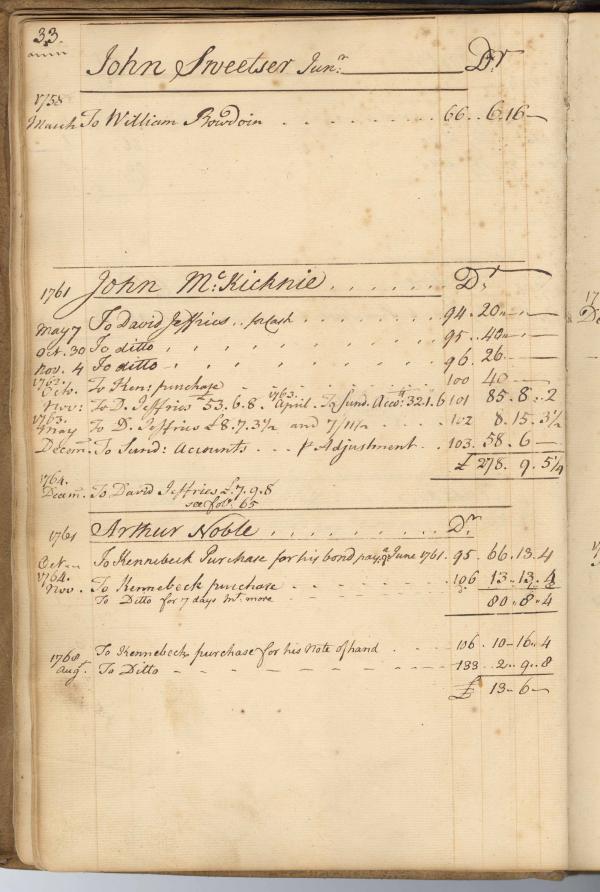 33.
John Sweetser Junr. Dr
1758
March To William Bowdoin . . . . . . . . 66 . . 6. 16 —
1761 John McKichnie . . . . . . Dr
May 7 To David Jeffries . . for Cash . . . . 94 . 20 — —
Oct. 30 To ditto . . . . . . . 95 . 40 — —
Nov. 4 To ditto . . . . . . . 96 . 26 — —
1762. Octo. To Ken: purchase 100 40 —
Nov: To D. Jeffries 53.6.8. 1763. April. To Sund. Accots 32.1.6 101 85. 8. 2
1763. May To D. Jeffries £8.7.3½ and 7/11½ . . . . 102 8. 15. 3½
Decem. To Sund: Accounts . . . Adjustment . . 103. 58. 6 —
£ 278. 9. 5¼
1764.
Decem. To David Jeffries £.7.9.8
see folo. 65
1761 Arthur Noble . . . . . . . . . Dr.
Oct To Kennebeck Purchase for his bond June 1761. 95. 66. 13. 4
1764.
Nov. To Kennebeck purchase . . . . . . . 106 13. 13. 4
To Ditto for 7 days Int. more
80. 8. 4
To Kennebeck purchase for his Note of hand . . . 106. 10 - 16. 4
1768
Augt. To Ditto 133 2. 9. 8
£ 13 - 6 —